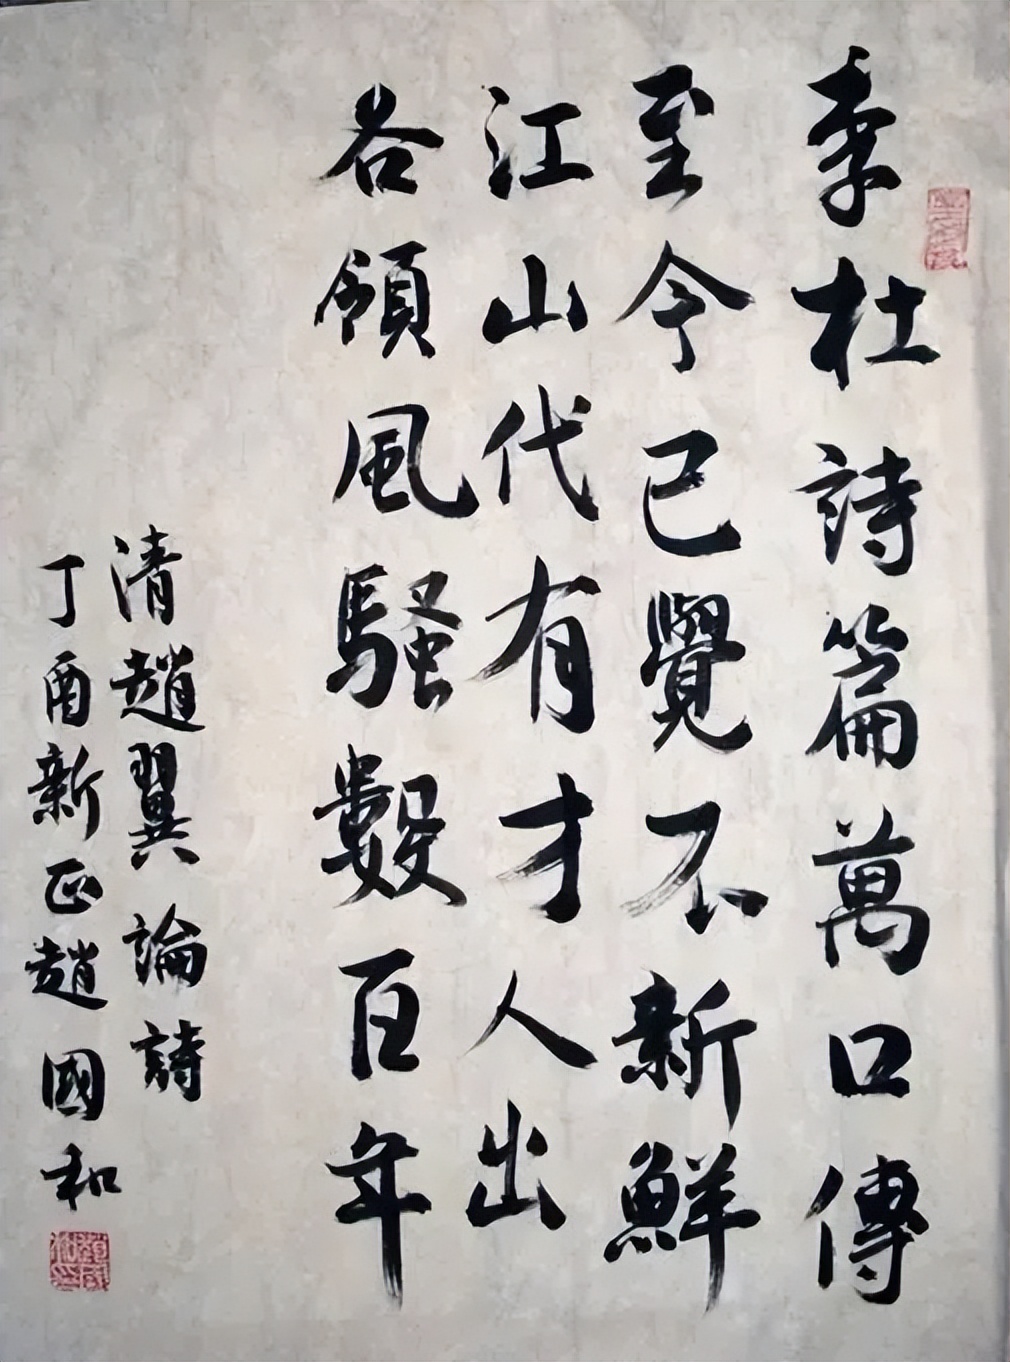 李杜詩篇萬口傳
至今已覺不新鮮
江山代有才人出
各領風騷數百年
清趙翼論詩
丁酉新正趙國和